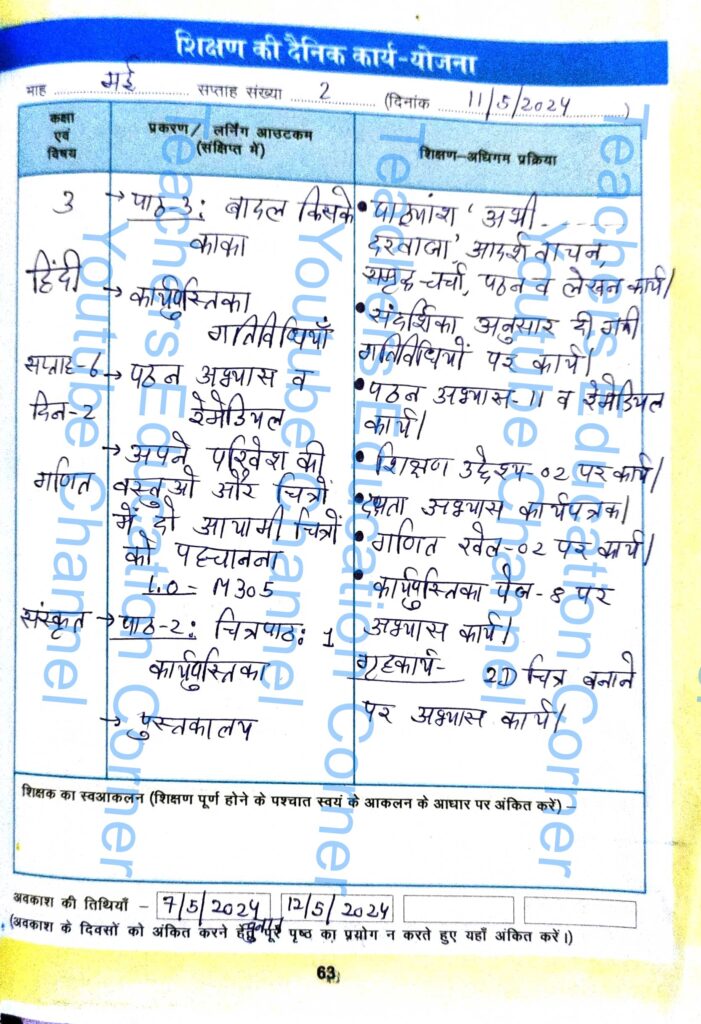 शिक्षण की दैनिक कार्य-योजना
माह मई सप्ताह संख्या 2 (दिनांक 11/5/2024)
कक्षा
एवं
विषय
प्रकरण/ लर्निंग आउटकम
(संक्षिप्त में)
शिक्षण-अधिगम प्रक्रिया
3
हिंदी
सप्ताह-6
दिन-2
गणित
संस्कृत
→ पाठ-3: बादल किसके
काका
→ कार्यपुस्तिका
गतिविधियाँ
→ पठन अभ्यास व
रेमेडियल
→ अपने परिवेश की
वस्तुओं और चित्रों
में दो आयामी चित्रों
को पहचानना
LO- M305
→ पाठ-2: चित्रपाठ: 1
कार्यपुस्तिका
→ पुस्तकालय
• पाठ्यांश 'अभी-----
दरवाजा', आदर्श वाचन,
समूह चर्चा, पठन व लेखन कार्य।
• संदर्शिका अनुसार दी गयी
गतिविधियों पर कार्य।
• पठन अभ्यास-11 व रेमेडियल
कार्य।
• शिक्षण उद्देश्य-02 पर कार्य।
• दक्षता अभ्यास कार्यपत्रक।
• गणित खेल-02 पर कार्य।
• कार्यपुस्तिका पेज-8 पर
अभ्यास कार्य।
गृहकार्य- 2D चित्र बनाने
पर अभ्यास कार्य।
शिक्षक का स्वआकलन (शिक्षण पूर्ण होने के पश्चात स्वयं के आकलन के आधार पर अंकित करें) –
अवकाश की तिथियाँ – 7/5/2024 12/5/2024
(अवकाश के दिवसों को अंकित करने हेतु पूरे पृष्ठ का प्रयोग न करते हुए यहाँ अंकित करें।)
63
Teachers Education Corner
Youtube Channel
Teachers Education Corner
Youtube Channel
Teachers Education Corner
Youtube Channel